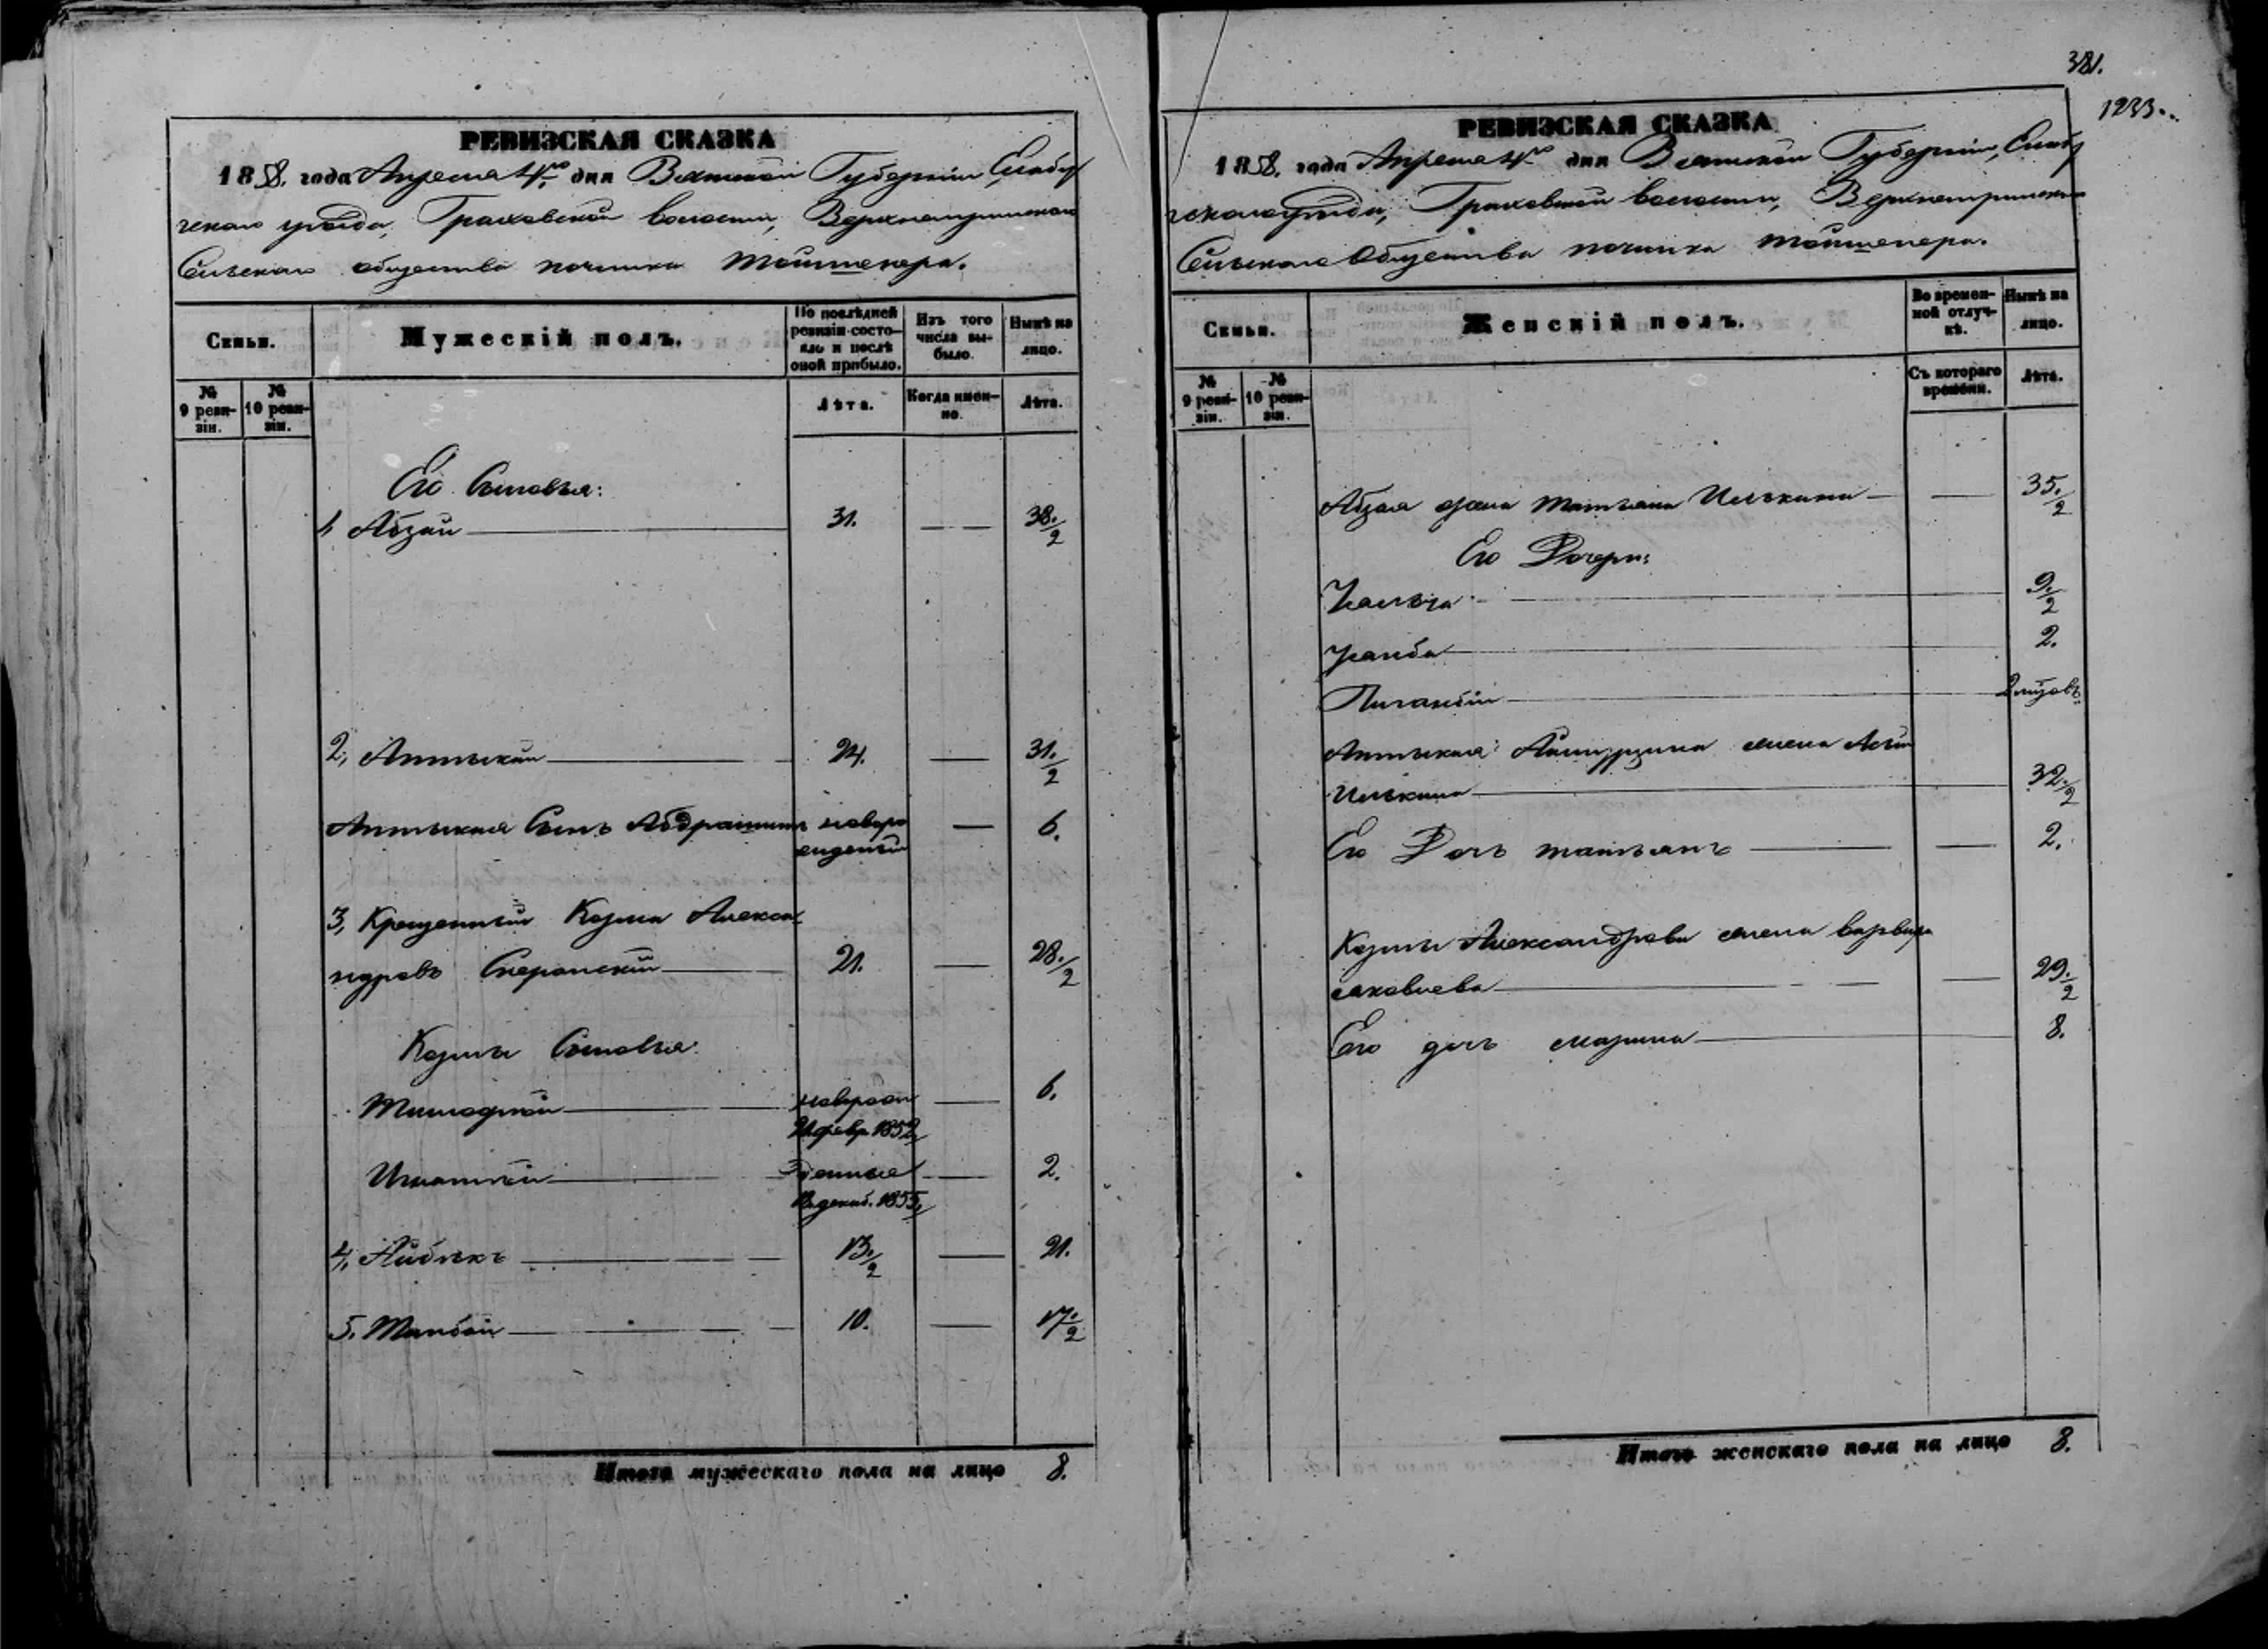 РЕВИЗСКАЯ СКАЗКА
1858. года Апреля 4го дня Вятской Губернии, Елабу
жскаго уѣзда, Граховской волости, Верхнетрыйскаго
Сельскаго общества починка
Семьи.
Мужескій полъ.
По послѣдней ревизіи состояло и послѣ оной прибыло.
Изъ того числа выбыло.
Нынѣ на лицо.
№ 9 ревизіи.
№ 10 ревизіи.
Лѣта.
Когда именно.
Лѣта.
Его Сыновья:
1 Абзай 31. — — 38./2
2, Аптыкай 24. — 31./2
Аптыкая Сынъ новоро — 6.
жденный
3, Крещенный Козма Алекса
ндровъ Сперанскій 21. — 28./2
Козмы Сыновья:
новорож — 6.
февр. 1852
Игнатій денные — 2.
декаб. 1855
4, 13./2 — 21.
5, Танбай 10. — 17./2
Итого мужескаго пола на лицо 8.
381.
1233.
РЕВИЗСКАЯ СКАЗКА
1858. года Апреля 4го дня Вятской Губернии, Елабу
жскаго уѣзда, Граховской волости, Верхнетрыйскаго
Сельскаго Общества починка
Семьи.
Женскій полъ.
Во временной отлучкѣ.
Нынѣ на лицо.
№ 9 ревизіи.
№ 10 ревизіи.
Съ котораго времени.
Лѣта.
Абзая жена Татьяна Илькина — 35./2
Его Дочери:
9./2
2.
2 мѣсяцовъ
Аптыкая жена
Илькина 32./2
Его Дочь — 2.
Козмы Александрова жена Варвара
Яковлева — 29./2
Его дочь Марина 8.
Итого женскаго пола на лицо 8.